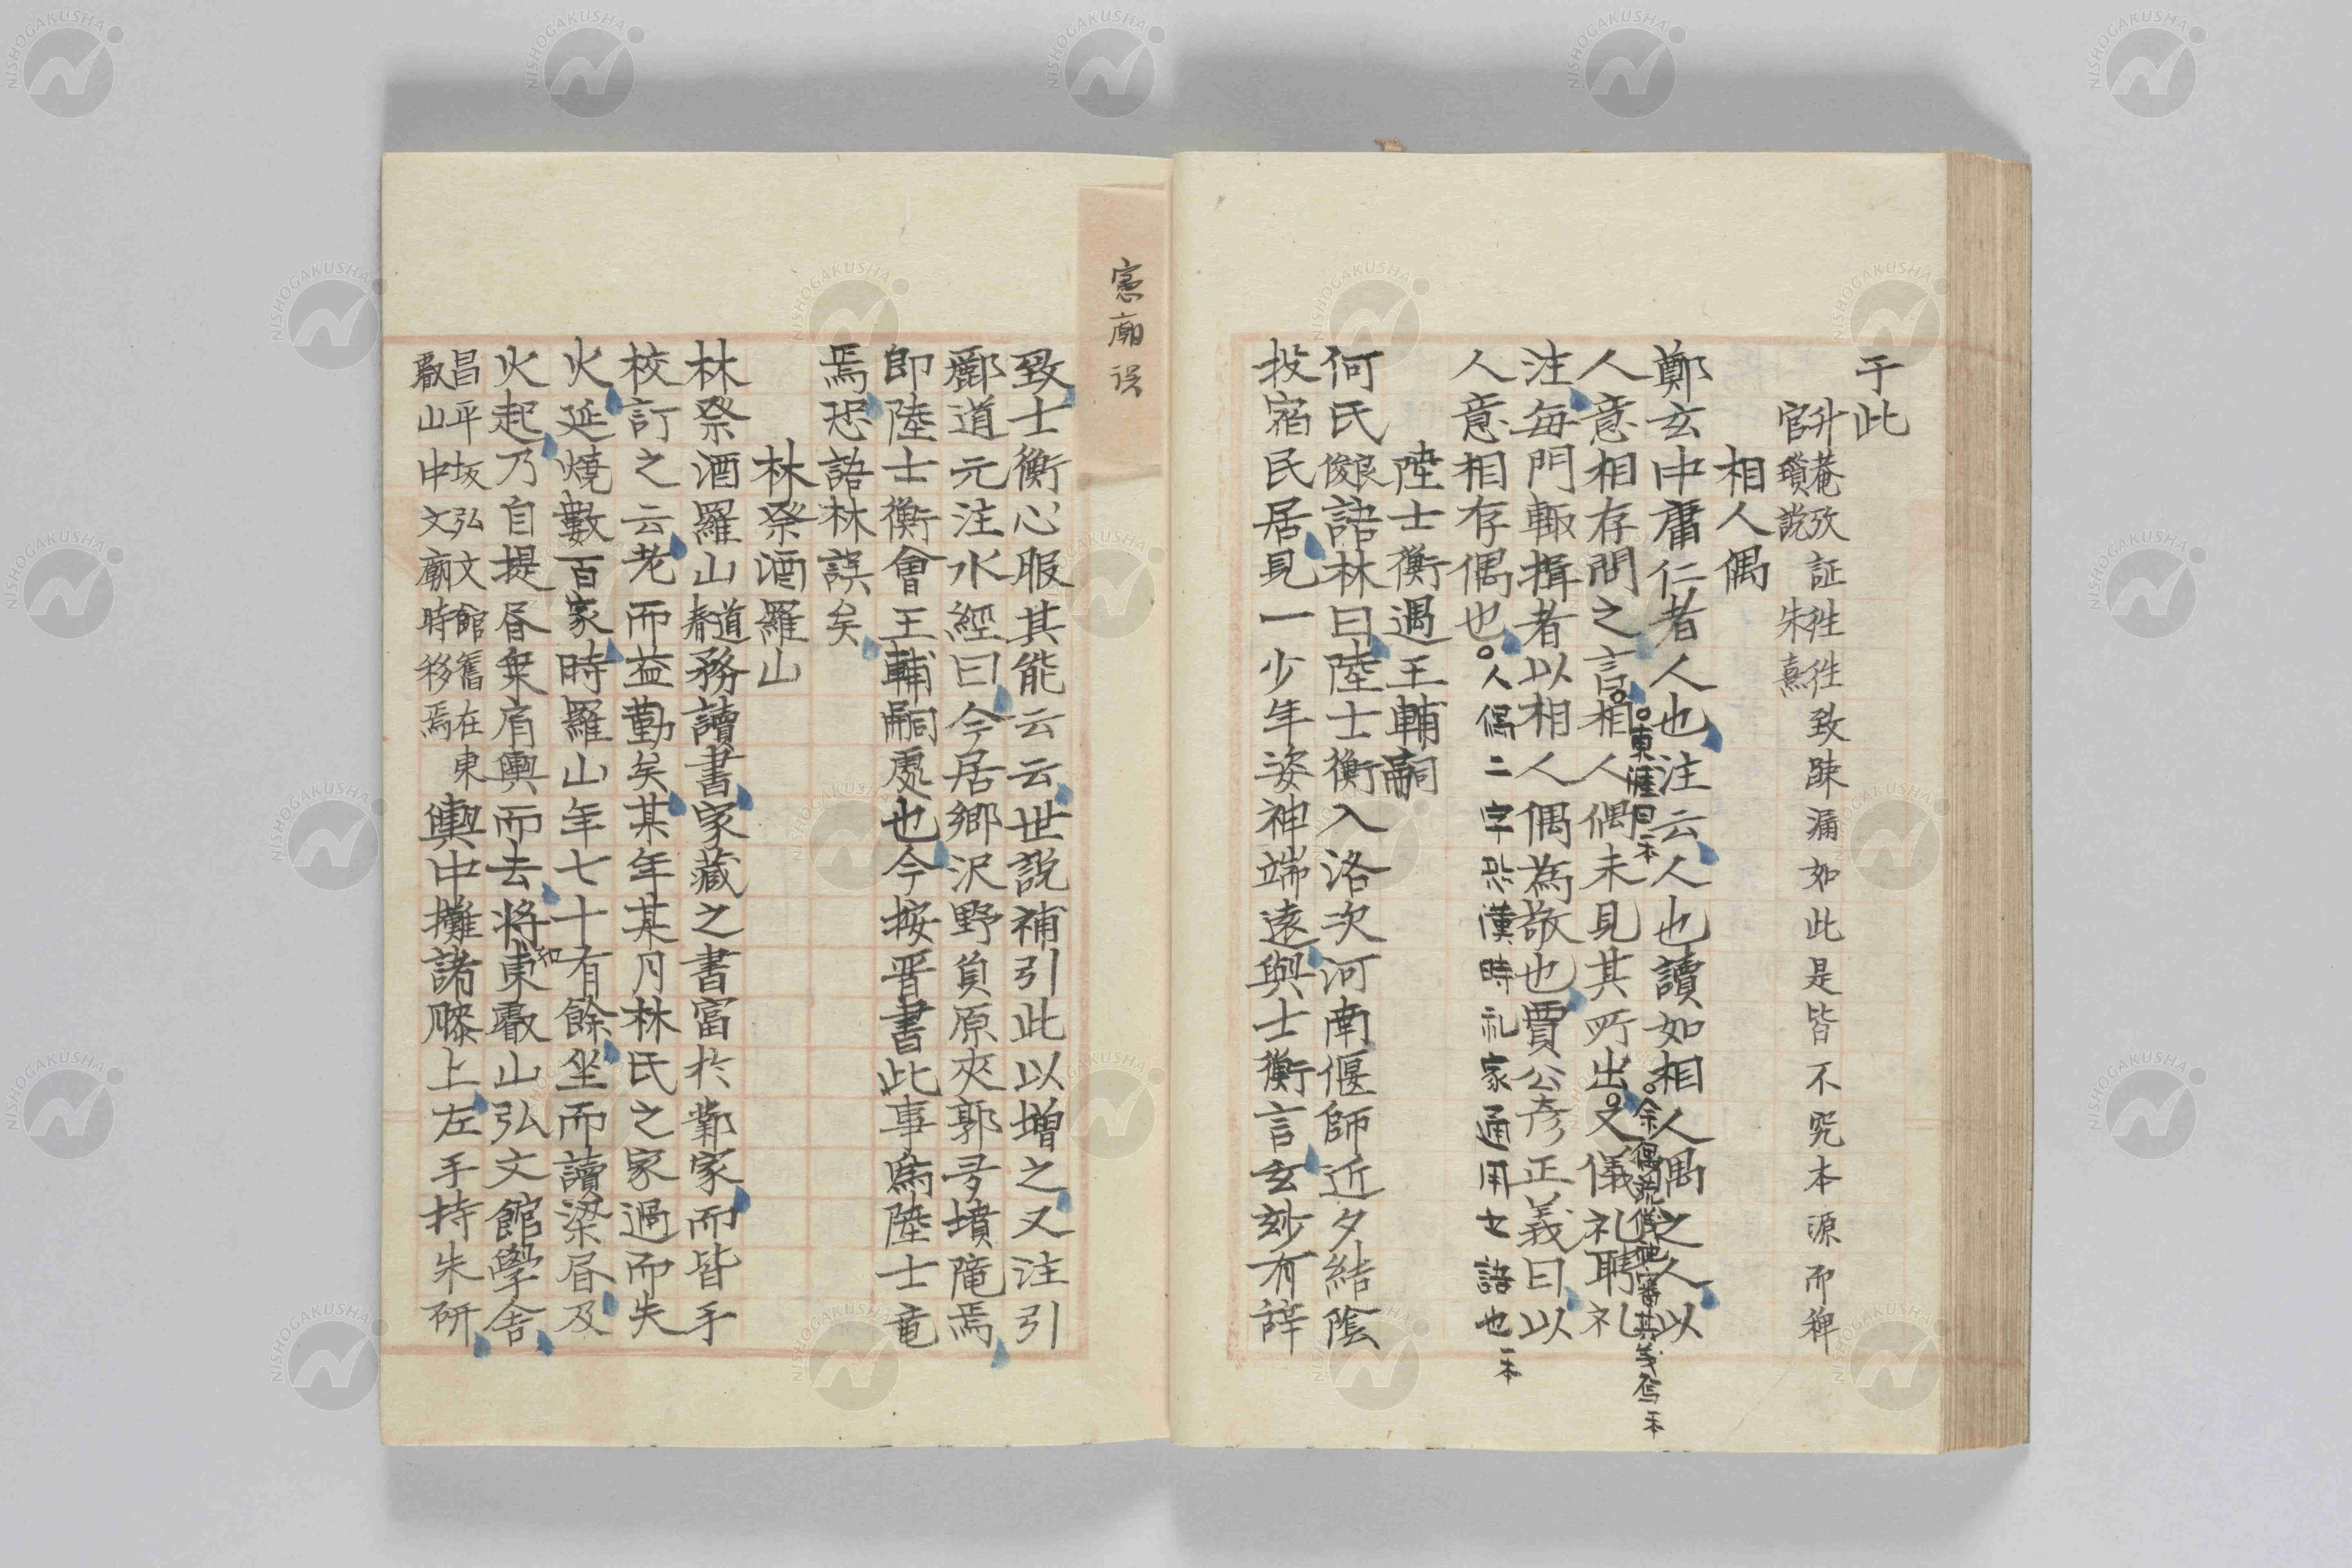 于此
升菴攷証徃徃致踈漏如此是皆不究本源而稗
官瑣説　朱熹
相人偶
鄭玄中庸仁者人也注云人也讀如相人偶之人以
東涯曰一本
余偶
其
一本
人意相存問之言相人偶未見其所出又儀礼聘礼
注每門輙揖者以相人偶為敬也賈公彦正義曰以
人意相存偶也人偶二字
漢時礼家通用之語也一本
陸士衡遇王輔嗣
何氏良俊語林曰陸士衡入洛次河南偃師近夕結陰
投宿民居見一少年姿神端遠與士衡言玄玅有辞
憲廟誤
致士衡心服其能云云世説補引此以增之又注引
酈道元注水經曰今居鄉沢野負原夾郭多墳隴焉
即陸士衡會王輔嗣處也今按晋書此事為陸士竜
焉恐語林誤矣
林祭酒羅山
林祭酒羅山道春務讀書家藏之書富於鄴家而皆手
校訂之云老而益勤矣某年某月林氏之家過而失
火延燒數百家時羅山年七十有餘坐而讀梁昏及
火起乃自提昏乗肩輿而去将如東叡山弘文館學舎
昌平坂弘文館舊在東
叡山中文廟時移焉
輿中攤諸膝上左手持朱研
NISHOGAKUSHA